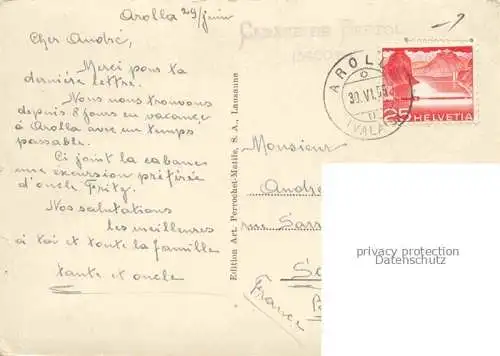 Arolla 29/juin
Cher André,
Merci pour ta
dernière lettre.
Nous nous trouvons
depuis 8 jours en vacance
à Arolla avec un temps
passable.
Ci joint la cabane
une excursion préférée
d'oncle Fritz.
Nos salutations
les meilleures
à toi et toute la famille
tante et oncle
Edition Art. Perrochet-Matile, S. A., Lausanne
CABANE DE BERTOL
AROLLA
30.VI.55
(VALAIS)
25 HELVETIA
Monsieur
André
rue
France
privacy protection
Datenschutz